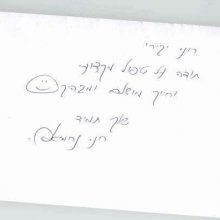 רוני יקירי
תודה על טיפול מקצועי
וחיוך מושלם ומבריק
שלך תמיד
רני נחמיאס.